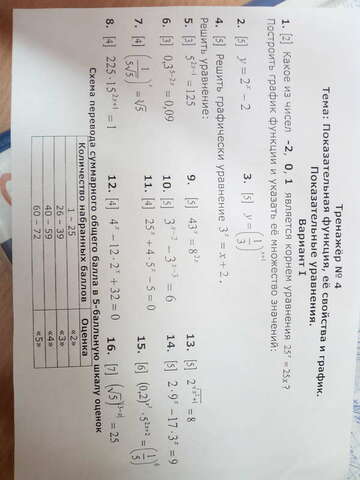 Тренажёр № 4
Тема: Показательная функция, её свойства и график.
Показательные уравнения.
Вариант I
1. [2] Какое из чисел -2, 0, 1 является корнем уравнения 25ˣ = 25x?
Построить график функции и указать её множество значений:
2. [5] y = 2ˣ − 2
3. [5] y = (1/3)ˣ⁺¹
4. [5] Решить графически уравнение 3ˣ = x + 2.
Решить уравнение:
5. [3] 5²ˣ⁻¹ = 125
6. [3] 0,3⁵⁻²ˣ = 0,09
7. [4]
8. [4] 225 · 15²ˣ⁺¹ = 1
9. [5]
10. [5]
11. [4] 25ˣ + 4 · 5ˣ − 5 = 0
12. [4] 4ˣ − 12 · 2ˣ + 32 = 0
13. [5]
14. [5] 2 · 9ˣ − 17 · 3ˣ = 9
15. [6]
16. [7]
Схема перевода суммарного общего балла в 5-балльную шкалу оценок
Количество набранных баллов Оценка
1 – 25 «2»
26 – 39 «3»
40 – 59 «4»
60 – 72 «5»